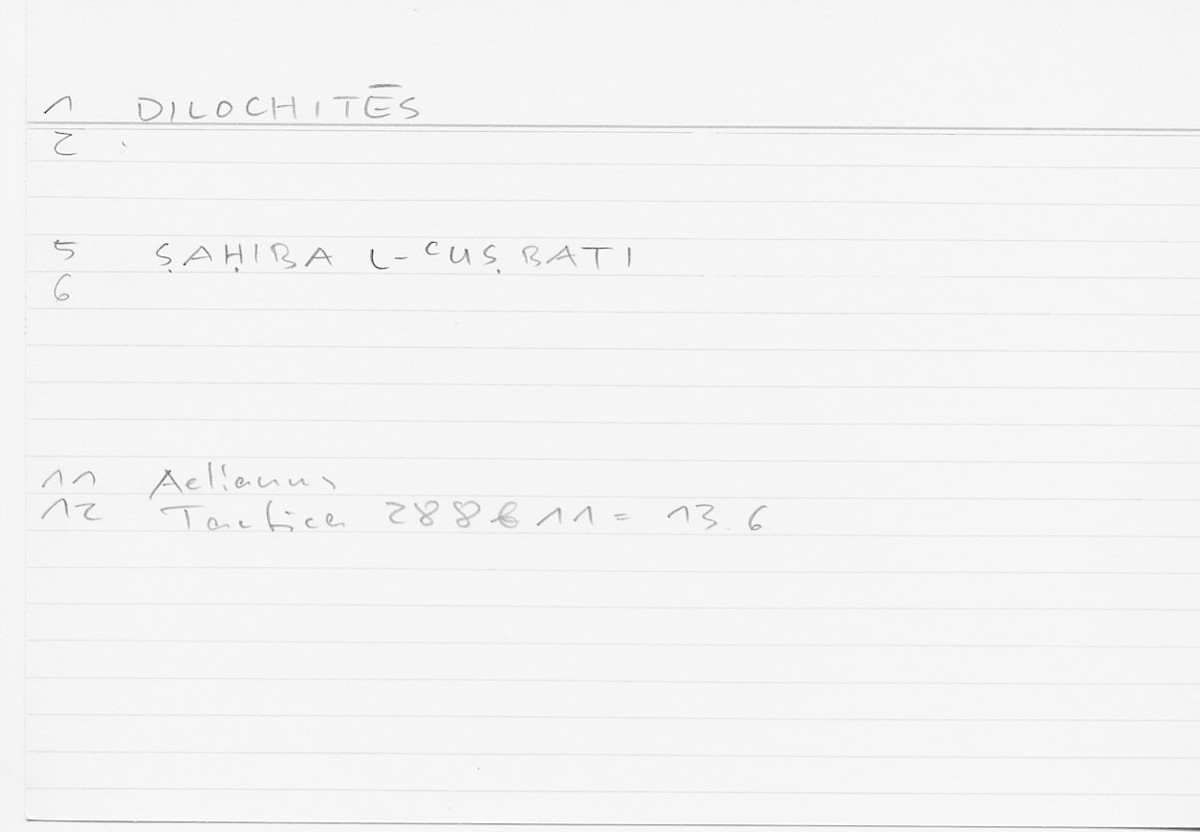 1 DILOCHITĒS
2
5 ṢAḤIBA L-ʿUṢBATI
6
11 Aelianus
12 Tactica 288 11 = 13.6